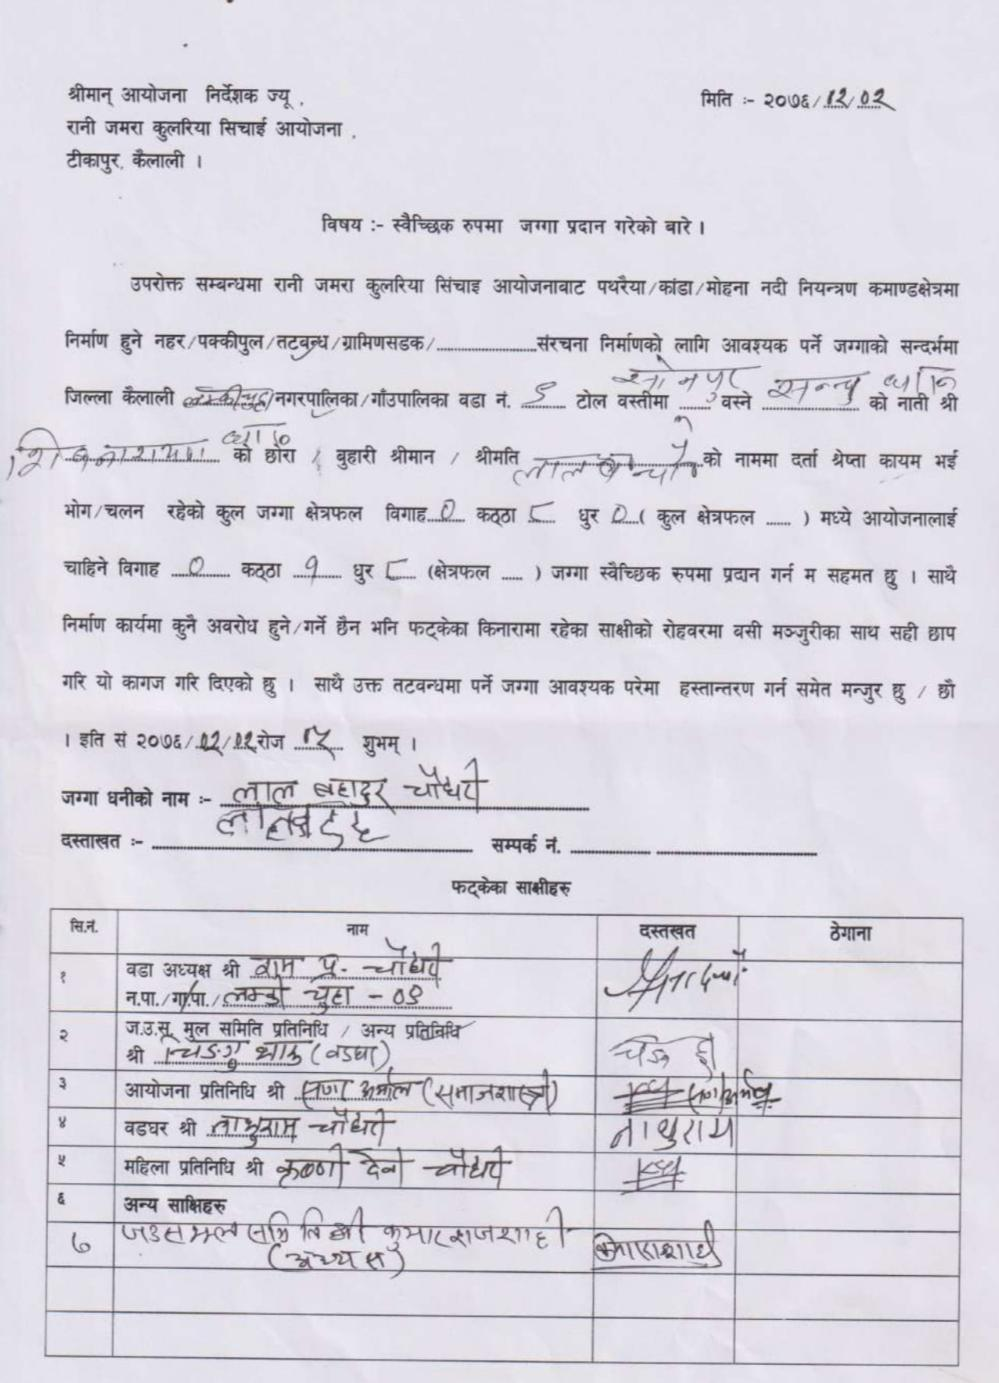 श्रीमान् आयोजना निर्देशक ज्यू ,
मिति :- २०७६/12/02
रानी जमरा कुलरिया सिचाई आयोजना ,
टीकापुर, कैलाली ।
विषय :- स्वैच्छिक रुपमा जग्गा प्रदान गरेको बारे ।
उपरोक्त सम्बन्धमा रानी जमरा कुलरिया सिंचाइ आयोजनाबाट पथरैया/कांडा/मोहना नदी नियन्त्रण कमाण्डक्षेत्रमा
निर्माण हुने नहर/पक्कीपुल/तटबन्ध/ग्रामिणसडक/....................संरचना निर्माणको लागि आवश्यक पर्ने जग्गाको सन्दर्भमा
जिल्ला कैलाली नगरपालिका/गाँउपालिका वडा नं. टोल वस्तीमा वस्ने को नाती श्री
को छोरा / बुहारी श्रीमान / श्रीमति को नाममा दर्ता श्रेष्ता कायम भई
भोग/चलन रहेको कुल जग्गा क्षेत्रफल विगाह 0 कठ्ठा ८ धुर 0 ( कुल क्षेत्रफल ...... ) मध्ये आयोजनालाई
चाहिने विगाह 0 कठ्ठा १ धुर ८ (क्षेत्रफल ..... ) जग्गा स्वैच्छिक रुपमा प्रदान गर्न म सहमत छु । साथै
निर्माण कार्यमा कुनै अवरोध हुने/गर्ने छैन भनि फट्केका किनारामा रहेका साक्षीको रोहवरमा वसी मञ्जुरीका साथ सही छाप
गरि यो कागज गरि दिएको छु । साथै उक्त तटवन्धमा पर्ने जग्गा आवश्यक परेमा हस्तान्तरण गर्न समेत मन्जुर छु / छौ
। इति सं २०७६/12/02 रोज शुभम् ।
जग्गा धनीको नाम :- लाल बहादुर चौधरी
दस्ताखत :- सम्पर्क नं.
फट्केका साक्षीहरु
सि.नं. नाम दस्तखत ठेगाना
१ वडा अध्यक्ष श्री राम प्र. चौधरी
न.पा./गा.पा./लम्की चुहा - ०९
२ ज.उ.सू. मुल समिति प्रतिनिधि / अन्य प्रतिनिधि
श्री (वडघर)
३ आयोजना प्रतिनिधि श्री (समाजशास्त्री)
४ वडघर श्री नाथुराम चौधरी नाथुराम
५ महिला प्रतिनिधि श्री कृष्णी देवी चौधरी
६ अन्य साक्षिहरु
७ श्री कुमार राज शाही
(अध्यक्ष)